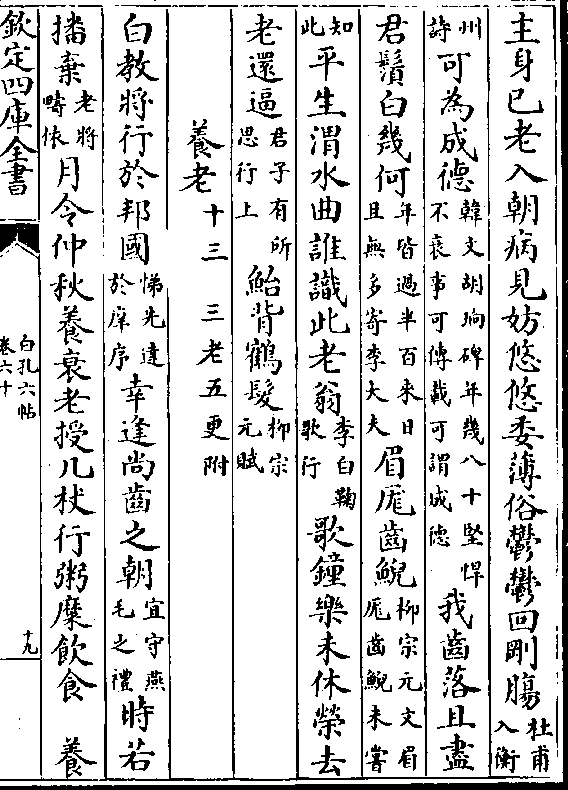 主身已老入朝病見妨悠悠委薄俗鬱鬱回剛腸杜甫入衡
州詩可為成德韓文胡珦碑年幾八十堅悍不衰事可傳載可謂成德我齒落且盡
君鬚白幾何年皆過半百来日且無多寄李大夫眉厖齒鯢柳宗元文眉厖齒鯢未嘗
知此平生渭水曲誰識此老翁李白鞠歌行歌鐘樂未休榮去
老還逼君子有所思行上鮐背鶴髮柳宗元賦
養老十三 三老五更附
白教將行於邦國悌先達於庠序幸逢尚齒之朝宜守燕毛之禮時若
播棄老將疇依月令仲秋養衰老授几杖行粥糜飲食 養
欽定四庫全書
白孔六帖
卷六十
十九